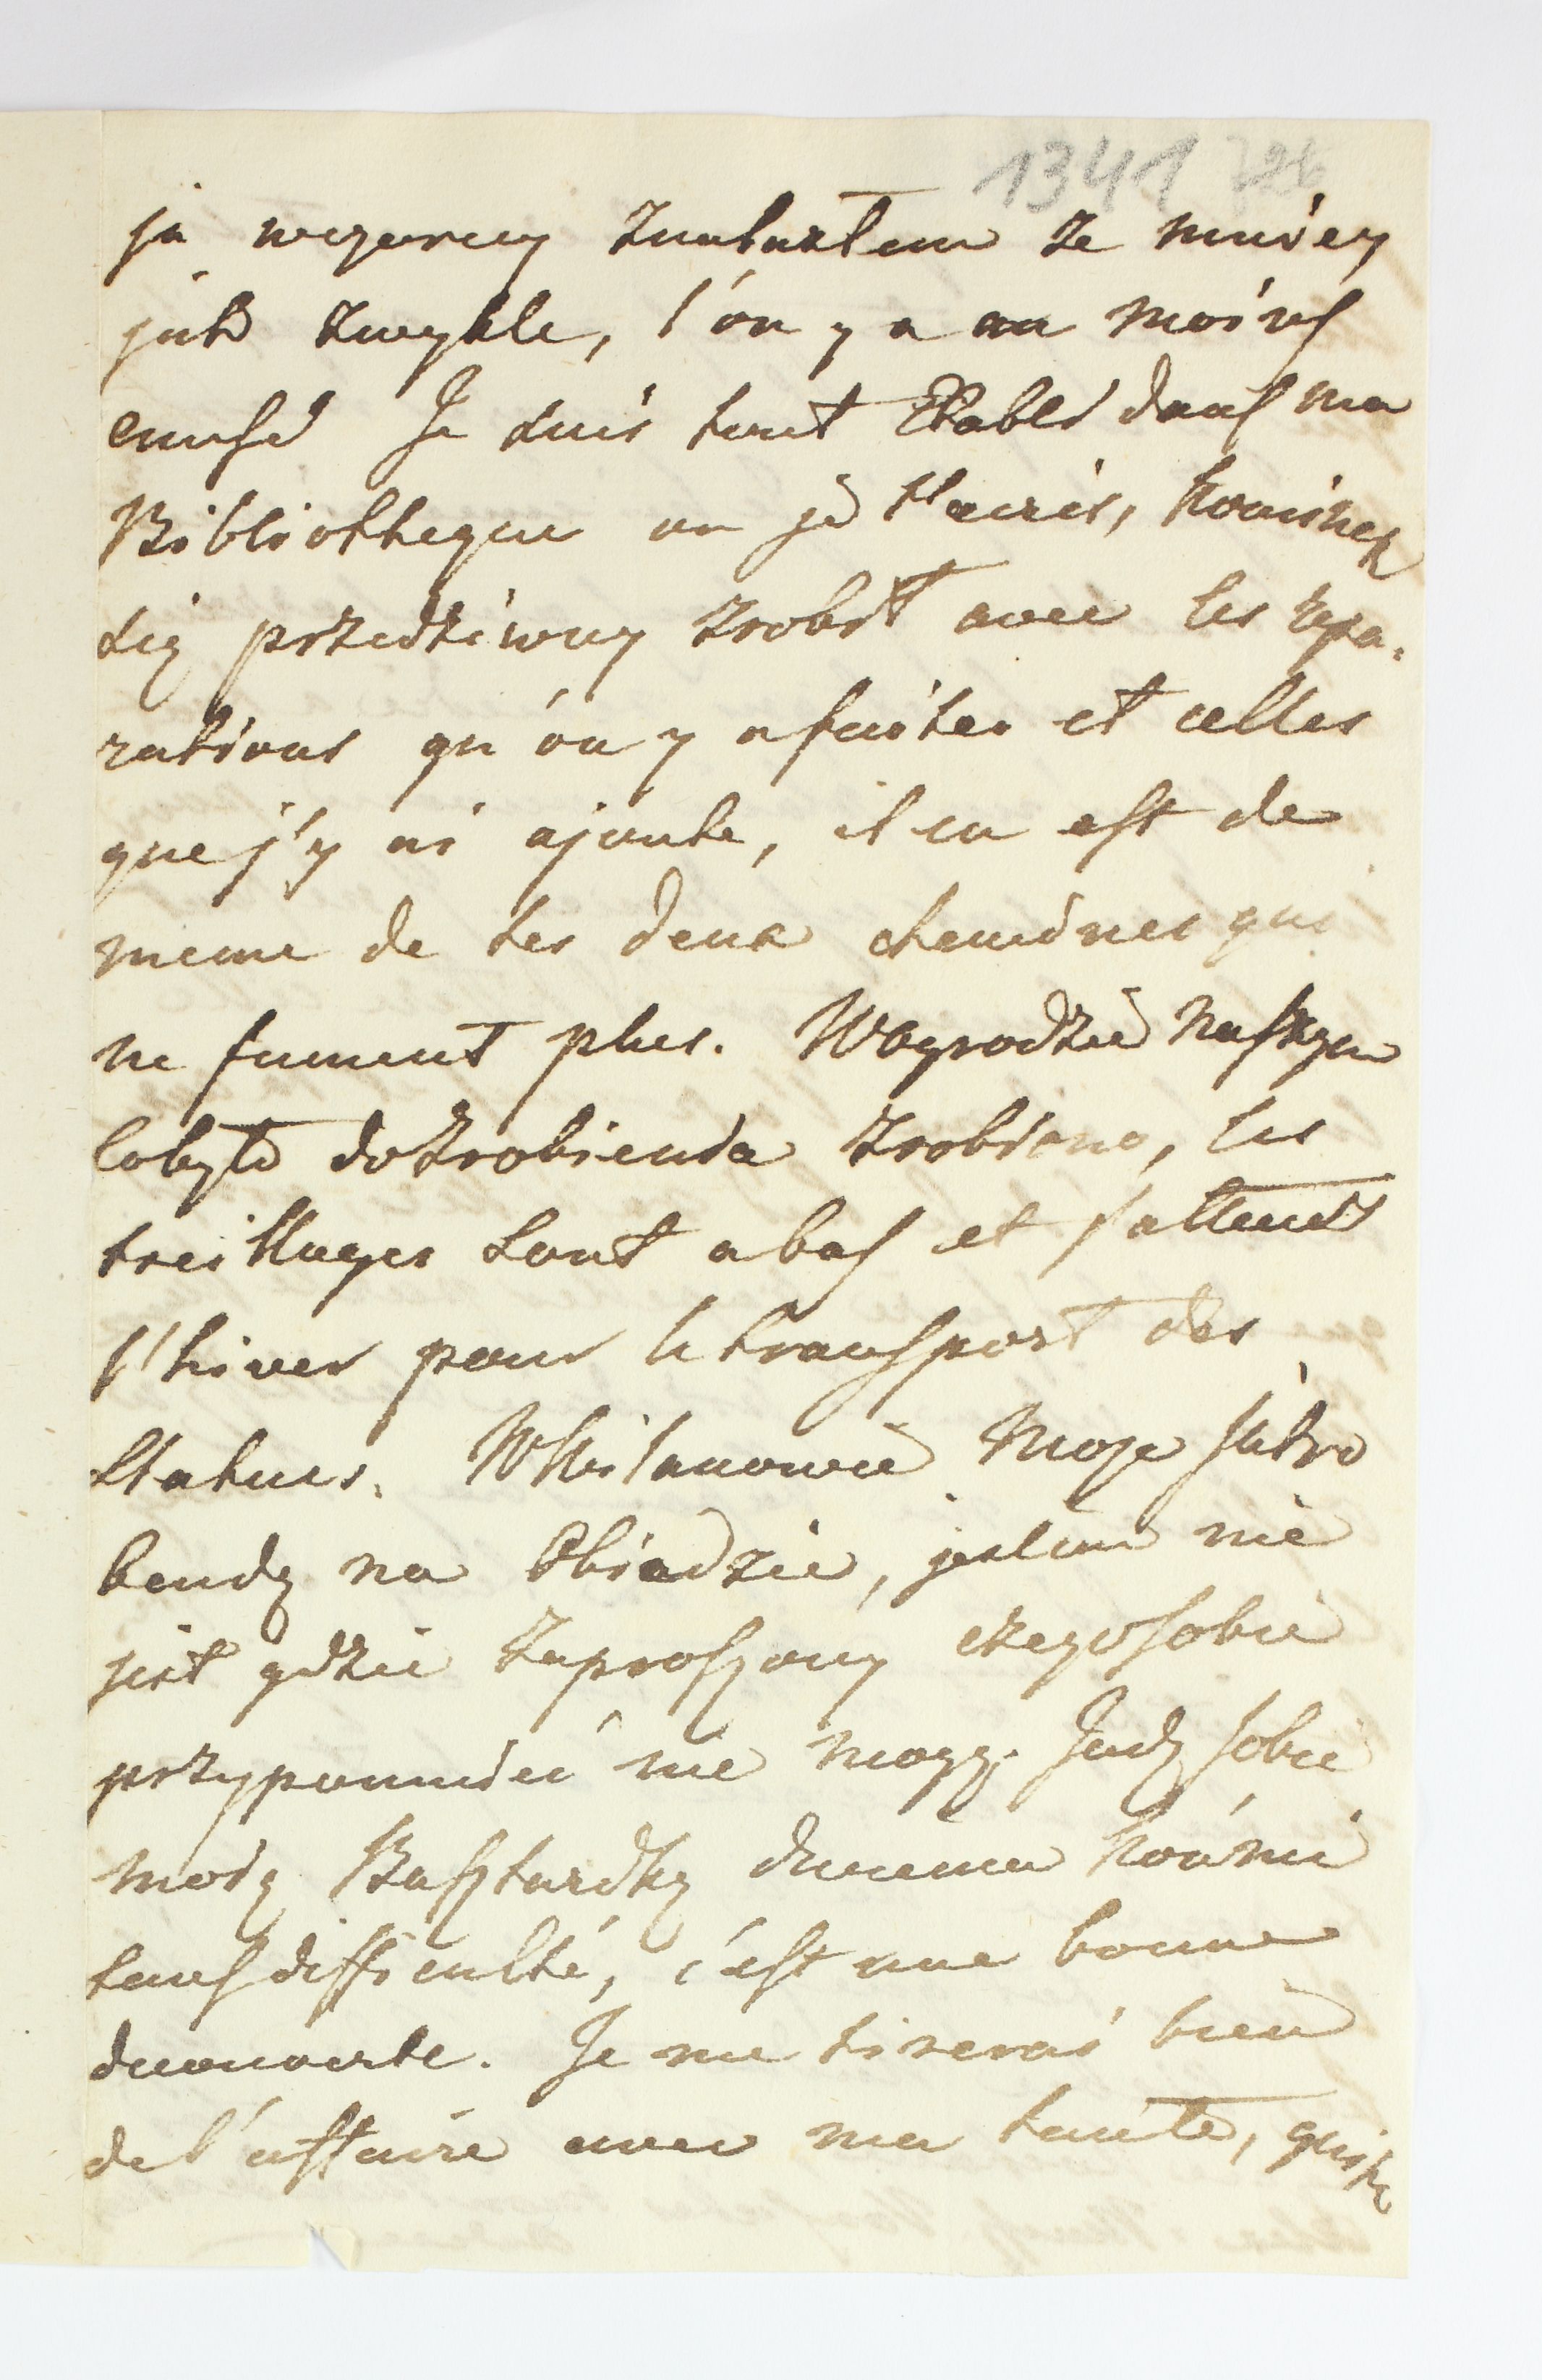 1341 726
ja wczoray znalazłem ze mniey
jak zwykle, l'on y a au moins
causé Je suis tout Etabli dans ma
Bibliotheque ou je t'ecris, kominek
się przedziwny zrobił avec les repa-
rations qu'on y a faites et celles
que j'y ai ajoute, il en est de
meme de tes deux cheminés qui
ne fument plus. W Ogrodzie naszym
co było do zrobienia zrobiono, les
treillages sont a bas et j'attends
l'hiver pour le transport des
Statues. W Wilanowie moze jutro
bendę na Obiedzie, jeslim nie
jest gdzie zaproszony czego sobie
przypomniec nie mogę. Jadę sobie
moię Basztardkę dwuma końmi
sans difficulté, c'est une bonne
decouverte. Je me tirerai bien
de l'affaire avec ma tante,